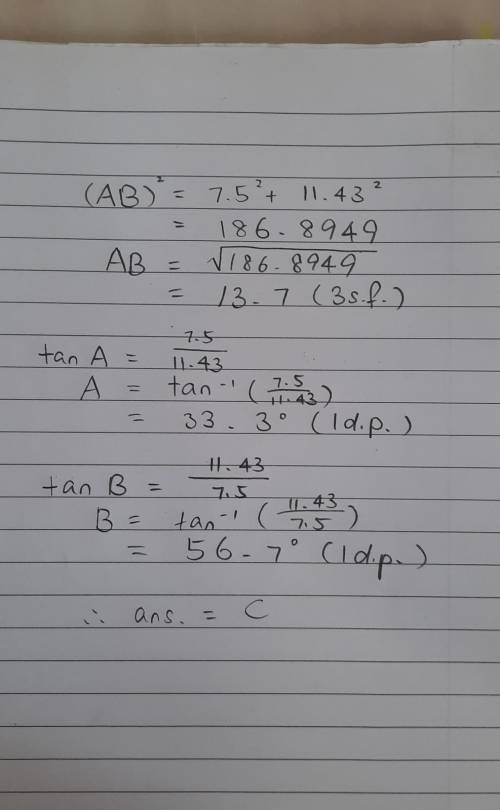 (AB)² = 7.5² + 11.43²
= 186.8949
AB = √186.8949
= 13.7 (3s.f.)
tan A = 7.5/11.43
A = tan⁻¹ (7.5/11.43)
= 33.3° (1d.p.)
tan B = 11.43/7.5
B = tan⁻¹ (11.43/7.5)
= 56.7° (1d.p.)
∴ ans. = C